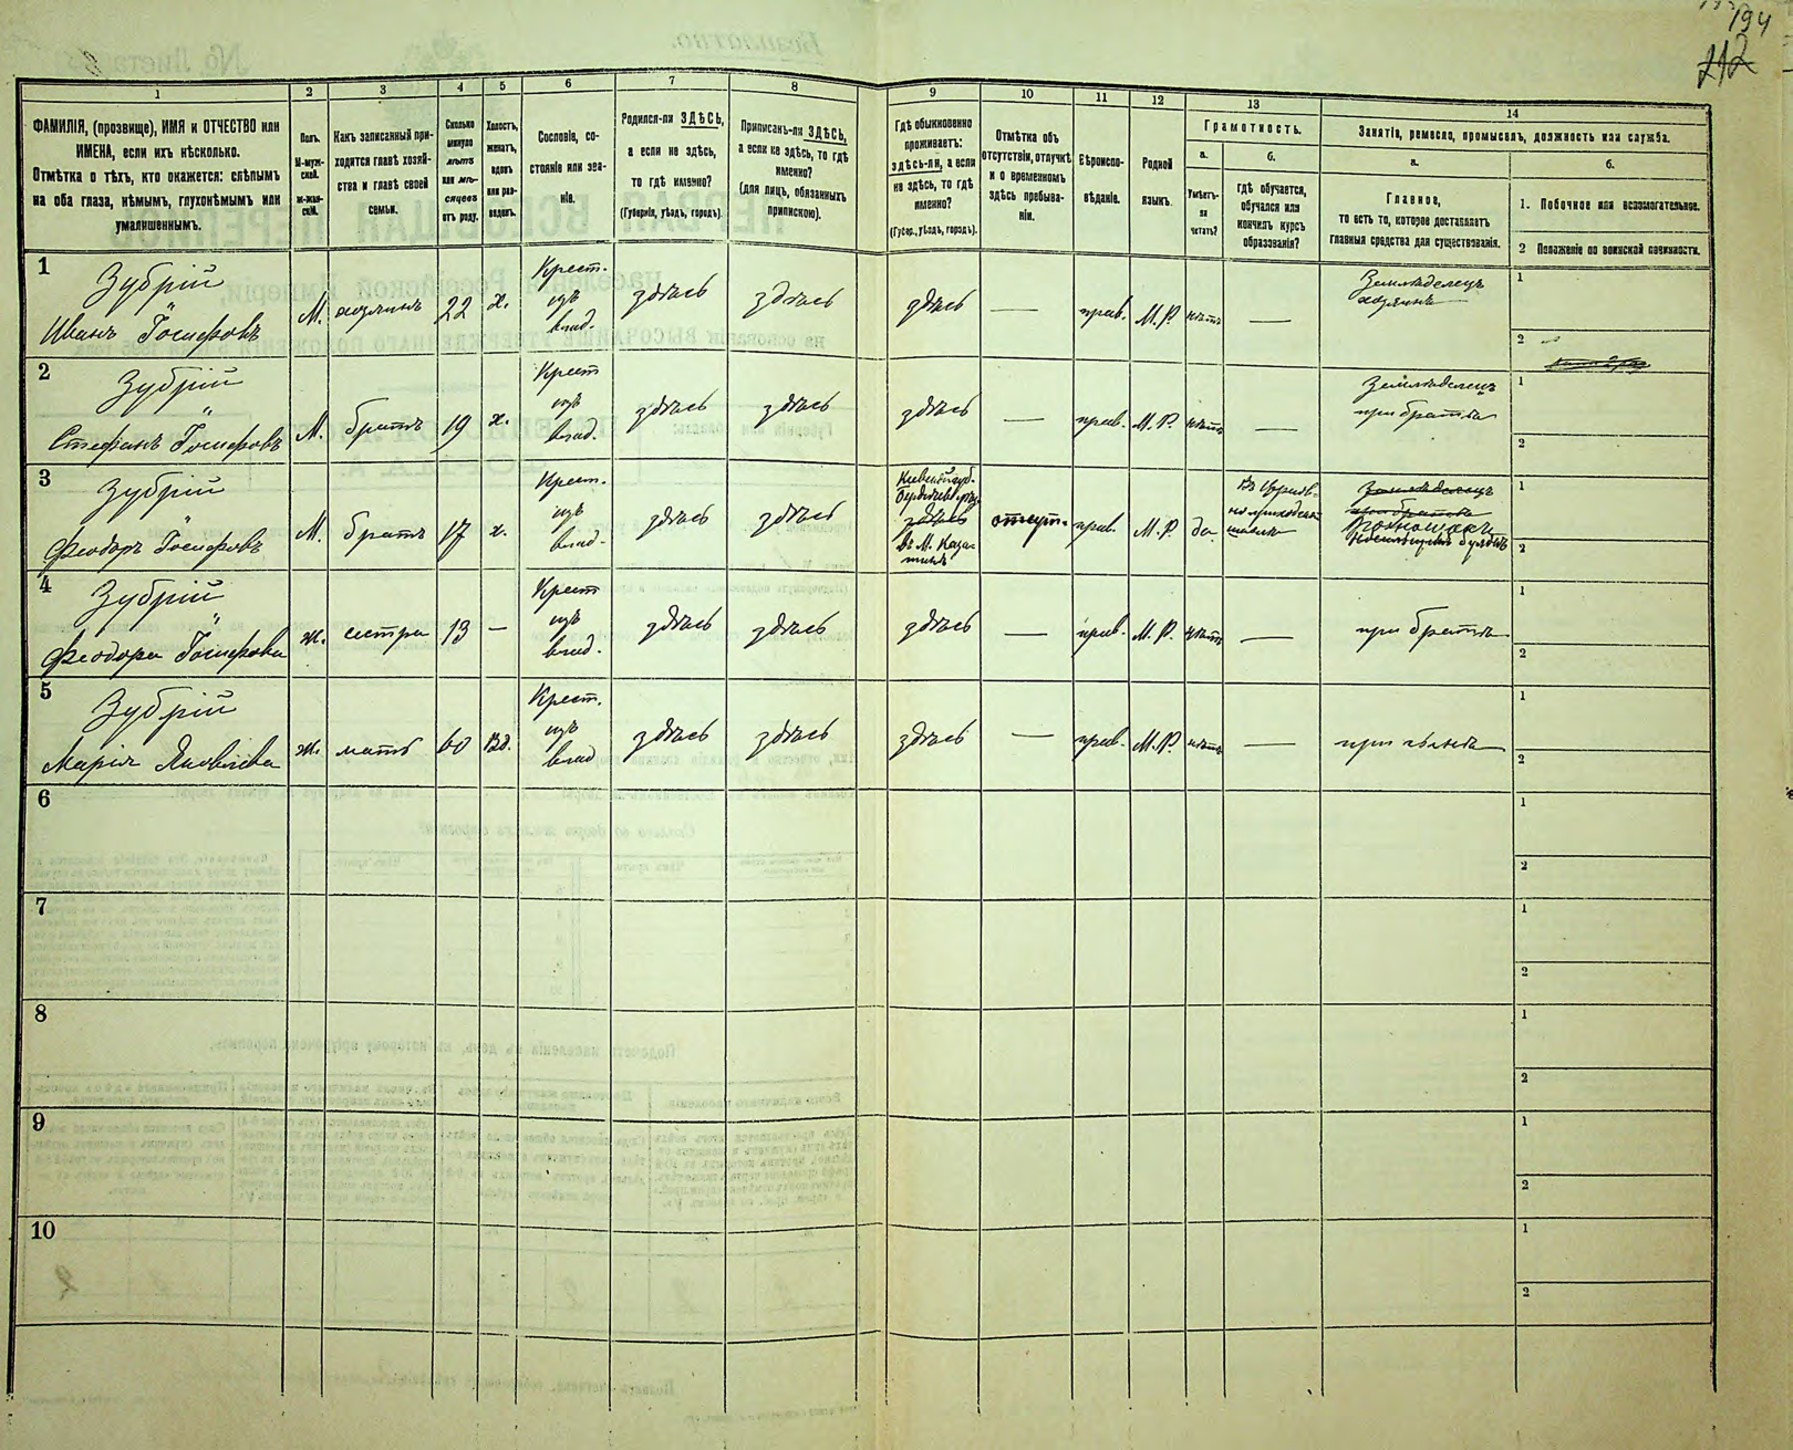 194
212
1
2
3
4
5
6
7
8
9
10
11
12
13
14
ФАМИЛІЯ, (прозвище), ИМЯ и ОТЧЕСТВО или
ИМЕНА, если ихъ нѣсколько.
Отмѣтка о тѣхъ, кто окажется: слѣпымъ
на оба глаза, нѣмымъ, глухонѣмымъ или
умалишеннымъ.
Полъ.
М-муж-
ской.
ж-жен-
скій.
Какъ записанный при-
ходится главѣ хозяй-
ства и главѣ своей
семьи.
Сколько
минуло
лѣтъ
или мѣ-
сяцевъ
отъ роду.
Холостъ,
женатъ,
вдовъ
или раз-
веденъ.
Сословіе, со-
стояніе или зва-
ніе.
Родился-ли ЗДѢСЬ,
а если не здѣсь,
то гдѣ именно?
(Губернія, уѣздъ, городъ).
Приписанъ-ли ЗДѢСЬ,
а если не здѣсь, то гдѣ
именно?
(для лицъ, обязанныхъ
припискою).
Гдѣ обыкновенно
проживаетъ:
здѣсь-ли, а если
не здѣсь, то гдѣ
именно?
(Губер., уѣздъ, городъ).
Отмѣтка объ
отсутствіи, отлучкѣ
и о временномъ
здѣсь пребыва-
ніи.
Вѣроиспо-
вѣданіе.
Родной
языкъ.
Грамотность.
а.
Умѣетъ-
ли
читать?
б.
гдѣ обучается,
обучался или
кончилъ курсъ
образованія?
Занятія, ремесло, промыселъ, должность или служба.
а.
Главное,
то есть то, которое доставляетъ
главныя средства для существованія.
б.
1. Побочное или вспомогательное.
2 Положеніе по воинской повинности.
1
Зубрій
Иванъ Іосифовъ
М.
хозяинъ
22
х.
Крест.
изъ
влад.
здѣсь
здѣсь
здѣсь
—
прав.
М.Р.
нѣтъ
—
Земледѣлецъ
хозяинъ
1
2
2
Зубрій
Стефанъ Іосифовъ
М.
братъ
19
х.
Крест
изъ
влад.
здѣсь
здѣсь
здѣсь
—
прав.
М.Р.
нѣтъ
—
Земледѣлецъ
при братѣ
1
2
3
Зубрій
Феодоръ Іосифовъ
М.
братъ
17
х.
Крест.
изъ
влад.
здѣсь
здѣсь
Кіевской губ.
Бердичев. уѣз.
здѣсь
въ М. Каза-
тинѣ
отсут.
прав.
М.Р.
да
Въ церков-
но приходской
школѣ
Земледѣлецъ
при братѣ
1
2
4
Зубрій
Феодора Іосифова
ж.
сестра
13
—
Крест
изъ
влад.
здѣсь
здѣсь
здѣсь
—
прав.
М.Р.
нѣтъ
—
при братѣ
1
2
5
Зубрій
Марія Яковлева
ж.
мать
60
вд.
Крест.
изъ
влад
здѣсь
здѣсь
здѣсь
—
прав.
М.Р.
нѣтъ
—
при сынѣ
1
2
6
1
2
7
1
2
8
1
2
9
1
2
10
1
2